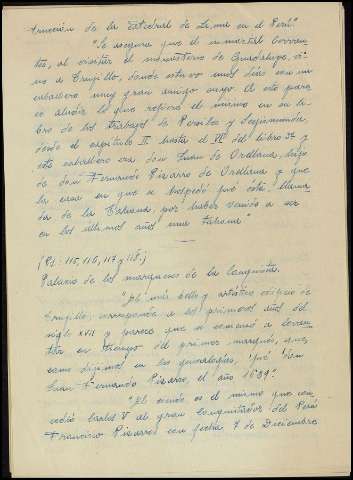 trucción de la Catedral de Lima en el Perú"
"Se asegura que el inmortal Cervan-
tes, al visitar el monasterio de Guadalupe, vi-
no a Trujillo, donde estuvo unos días con un
caballero muy gran amigo suyo al que pare-
ce aludir lo que refiere el mismo en su li-
bro de los trabajos de Persiles y Segismunda
desde el capítulo II hasta el VI del libro 3º y
este caballero era don Juan de Orellana, hijo
de don Fernando Pizarro de Orellana y que
la casa en que se hospedó fué ésta, llama-
da de la Tahona, por haber venido a ser
en los últimos años una tahona"
(Ps. 115, 116, 117 y 118)
Palacio de los marqueses de la Conquista.
"El más bello y artístico edificio de
Trujillo, corresponde a los primeros años del
siglo XVII y parece que se comenzó a levan-
tar en tiempo del primer marqués, que,
como dijimos en las genealogías, fué don
Juan Fernando Pizarro, el año 1639".
"El escudo es el mismo que con-
cedió Carlos V al gran Conquistador del Perú
Francisco Pizarro con fecha 7 de Diciembre